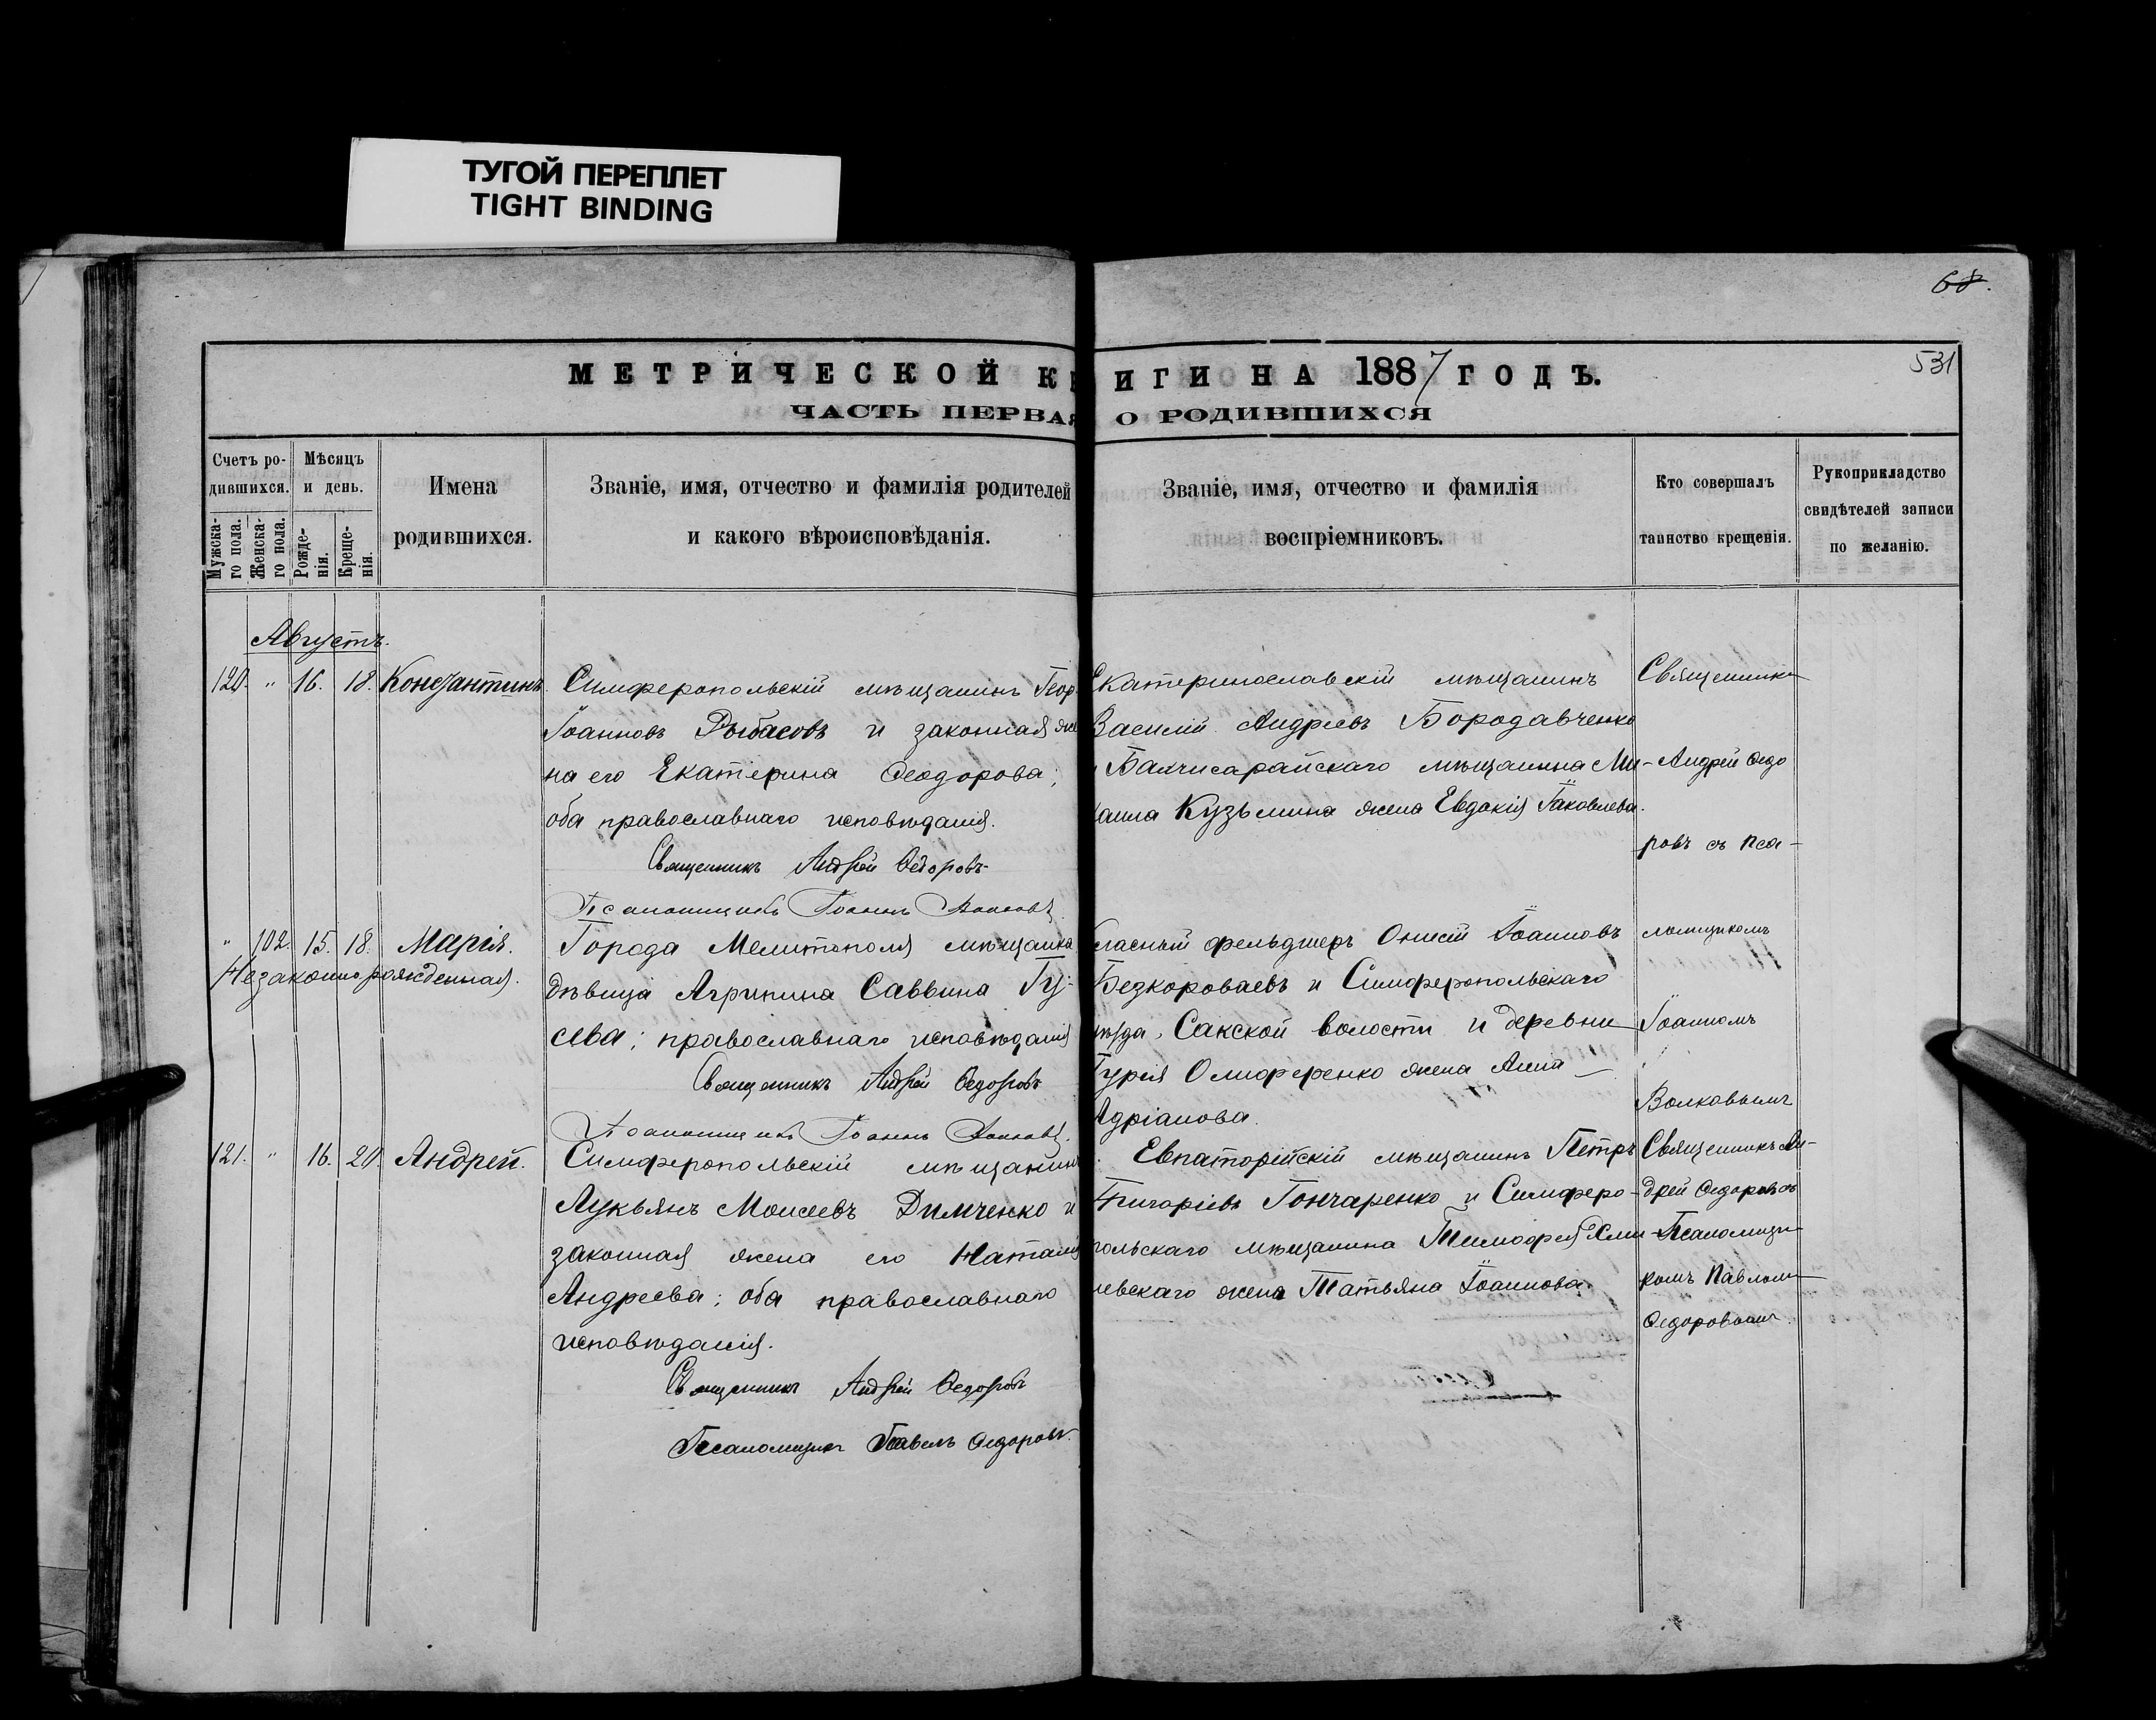 ТУГОЙ ПЕРЕПЛЕТ
TIGHT BINDING
68.
531
МЕТРИЧЕСКОЙ К ИГИ НА 1887 ГОДЪ.
ЧАСТЬ ПЕРВАЯ О РОДИВШИХСЯ
Счетъ ро-
дившихся.
Мужска-
го пола.
Женска-
го пола.
Мѣсяцъ
и день.
Рожде-
нія.
Креще-
нія.
Имена
родившихся.
Званіе, имя, отчество и фамилія родителей
и какого вѣроисповѣданія.
Званіе, имя, отчество и фамилія
воспріемниковъ.
Кто совершалъ
таинство крещенія.
Рукоприкладство
свидѣтелей записи
по желанію.
Августъ.
120. " 16. 18. Константинъ.
Симферопольскій мѣщанинъ Геор
Іоанновъ Рыбасовъ и законная же
на его Екатерина Ѳеодорова;
оба православнаго исповѣданія.
Священникъ Андрей Ѳедоровъ
Псаломщикъ Іоаннъ Волковъ
Екатеринославскій мѣщанинъ
Василій Андреевъ Бородавченко
Бахчисарайскаго мѣщанина Ми-
хаила Кузьмина жена Евдокія Іаковлева.
Священникъ
Андрей Ѳедо
ровъ съ пса-
" 102. 15. 18. Марія.
Незаконнорожденная.
Города Мелитополя мѣщанка
дѣвица Агрипина Саввина Гу-
сева; православнаго исповѣданія
Священникъ Андрей Ѳедоровъ
Псаломщикъ Іоаннъ Волковъ.
ласный фельдшеръ Онисій Іоанновъ
Безкороваевъ и Симферопольскаго
уѣзда, Сакской волости и деревни
Гурія Олиференко жена Анна
Адріанова.
ломщикомъ
Іоанномъ
Волковымъ
121. " 16. 20. Андрей.
Симферопольскій мѣщанинъ
Лукьянъ Моисеевъ Димченко и
законная жена его Наталія
Андреева; оба православнаго
исповѣданія.
Священникъ Андрей Ѳедоровъ
Псаломщикъ Павелъ Ѳедоровъ.
Евпаторійскій мѣщанинъ Петръ
Григоріевъ Гончаренко и Симферо-
польскаго мѣщанина Тимоѳея Хми
левскаго жена Татьяна Іоаннова.
Священникъ Ан-
дрей Ѳедоровъ съ
Псаломщи
комъ Павломъ
Ѳедоровымъ.